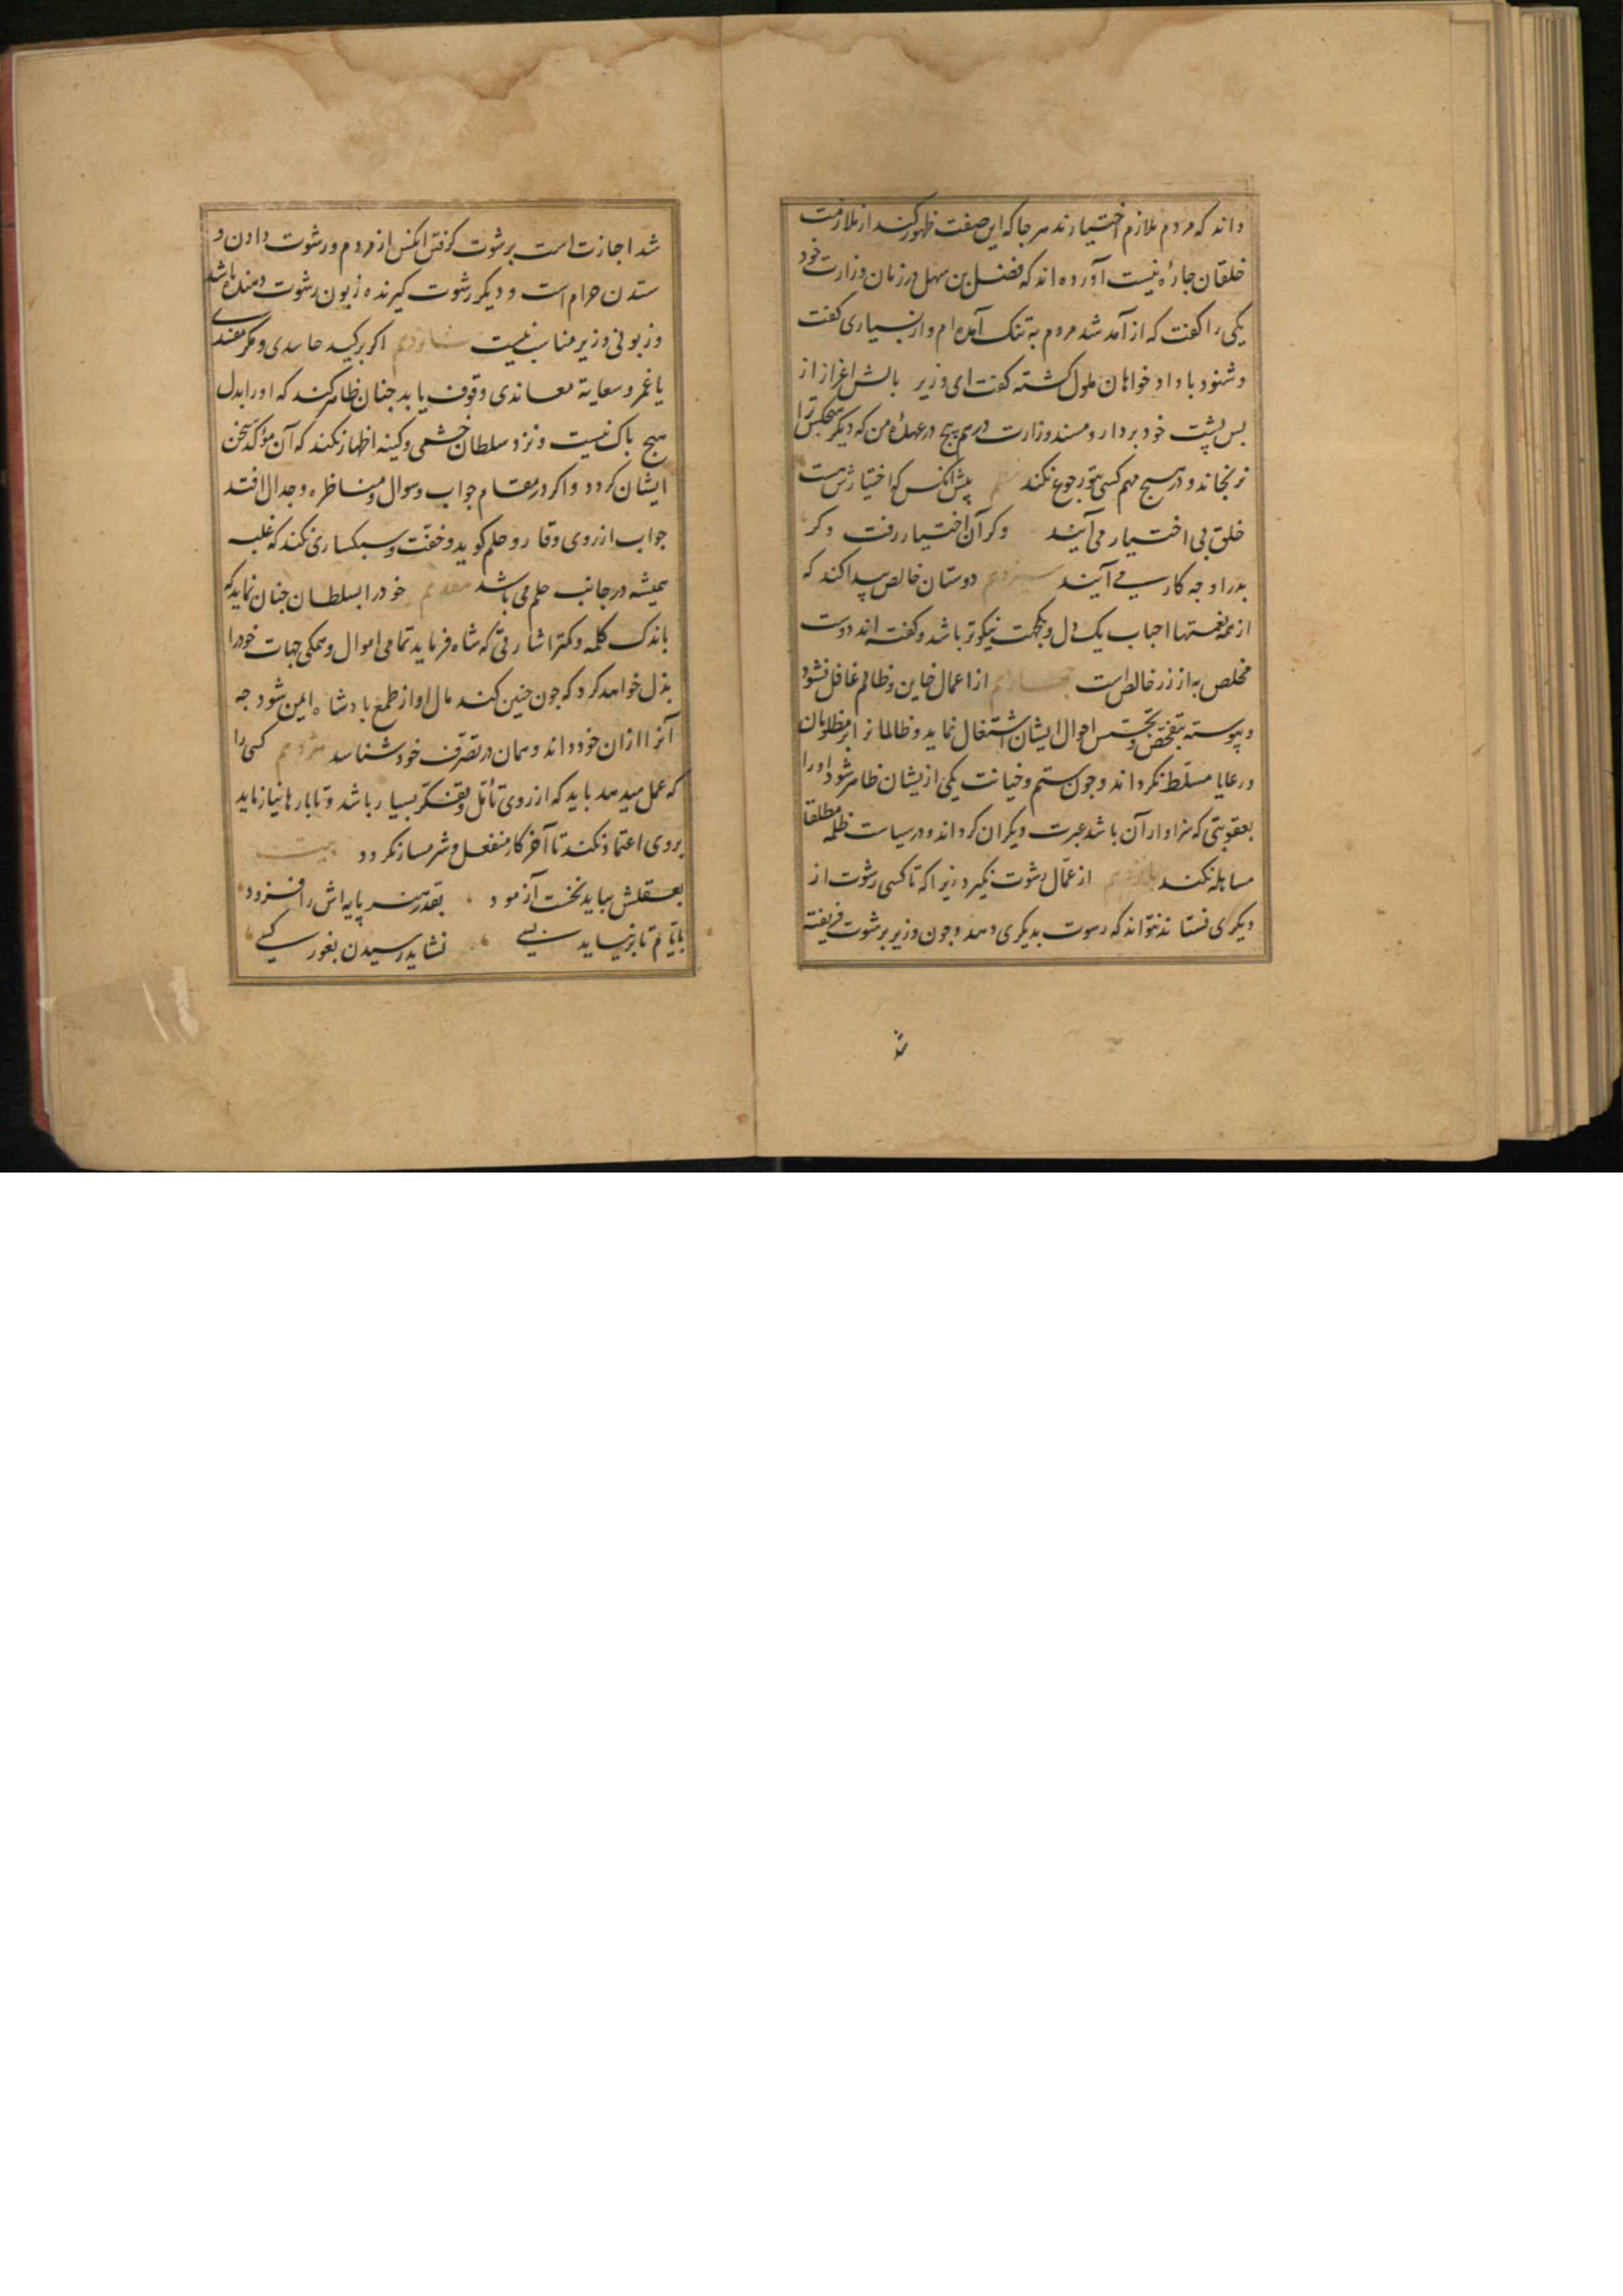 داند که مردم ملازم اختیارند هر جا که این صفت ظهور کند از ملازمت
خلقان چاره نیست آورده اند که فضل بن سهل در زمان وزارت خود
یکی را گفت که از آمد شد مردم به تنک آمده ام و از بسیاری گفت
و شنود با داد خواهان ملول گشته گفت ای وزیر بالش اعزاز از
پس پشت خود بردار و مسند وزارت در هم پیچ در عهدهٔ من که دیگر هیچکس ترا
نرنجاند و در هیچ مهم کسی بتو رجوع نکند نظم پیش آنکس کو اختیارش هست
خلق بی اختیار می آیند وکر آن اختیار رفت دکر
بدر او چه کار می آیند سیزدهم دوستان خالص پیدا کند که
از همه نعمتها احباب یک دل و یکجهت نیکوتر باشد و گفته اند دوست
مخلص به از زر خالص است چهاردهم از اعمال خاین و ظالم غافل نشود
و پیوسته بتفحص و تجسس احوال ایشان اشتغال نماید و ظالمانرا بر مظلومان
و رعایا مسلّط نکرداند و چون ستم و خیانت یکی ازیشان ظاهر شود او را
بعقوبتی که سزاوار آن باشد عبرت دیگران کرداند و در سیاست ظلمه مطلقا
مساهله نکند پانزدهم از عمّال رشوت نکیرد زیرا که تا کسی رشوت از
دیگری نستاند نتواند که رسوت بدیکری دهد و چون وزیر برشوت فریفته
شد
شد اجازت است برشوت کرفتن آنکس از مردم و رشوت دادن و
ستدن حرام است و دیکر رشوت کیرنده زبون رشوت دهنده باشد
و زبونی وزیر مناسب نیست شانزدهم اکر بر کید حاسدی و مکر مفسدی
یا غمز و سعایة معاندی وقوف یابد چنان ظاهر کند که او را بدل
هیچ باک نیست و نزد سلطان خشمی و کینه اظهار نکند که آن مؤکّد سخن
ایشان کردد و اکر در مقام جواب و سوال و مناظره و جدال افتد
جواب از روی وقار و حلم کوید و خفت و سبکساری نکند که غلبه
همیشه در جانب حلم می باشد هفدهم خود را بسلطان چنان نماید که
باندک کلمه و کمتر اشارتی که شاه فرماید تمامی اموال و همکی جهات خود را
بذل خواهد کرد که چون چنین کند مال او از طمع بادشاه ایمن شود چه
آنرا از آن خود داند و همان در تصرف خود شناسد هژدهم کسی را
که عمل میدهد باید که از روی تأمّل و تفکّر بسیار باشد و تا بارها نیازماید
بروی اعتماد نکند تا آخر کار منفعل و شرمسار نکردد بیت
بعقلش بباید نخست آزمود بقدر هنر پایه اش را فزود
بایّام تا بر نیاید بسی نشاید رسیدن بغور کسی